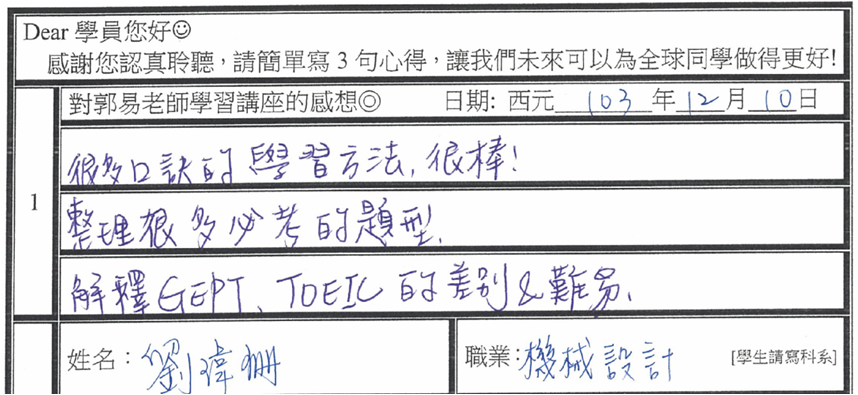 Dear 學員您好☺
感謝您認真聆聽，請簡單寫 3 句心得，讓我們未來可以為全球同學做得更好!
對郭易老師學習講座的感想◎ 日期: 西元 103 年 12 月 10 日
1
很多口訣的學習方法, 很棒!
整理很多必考的題型.
解釋GEPT、TOEIC 的差別&難易.
姓名：劉瑋珊 職業：機械設計 [學生請寫科系]